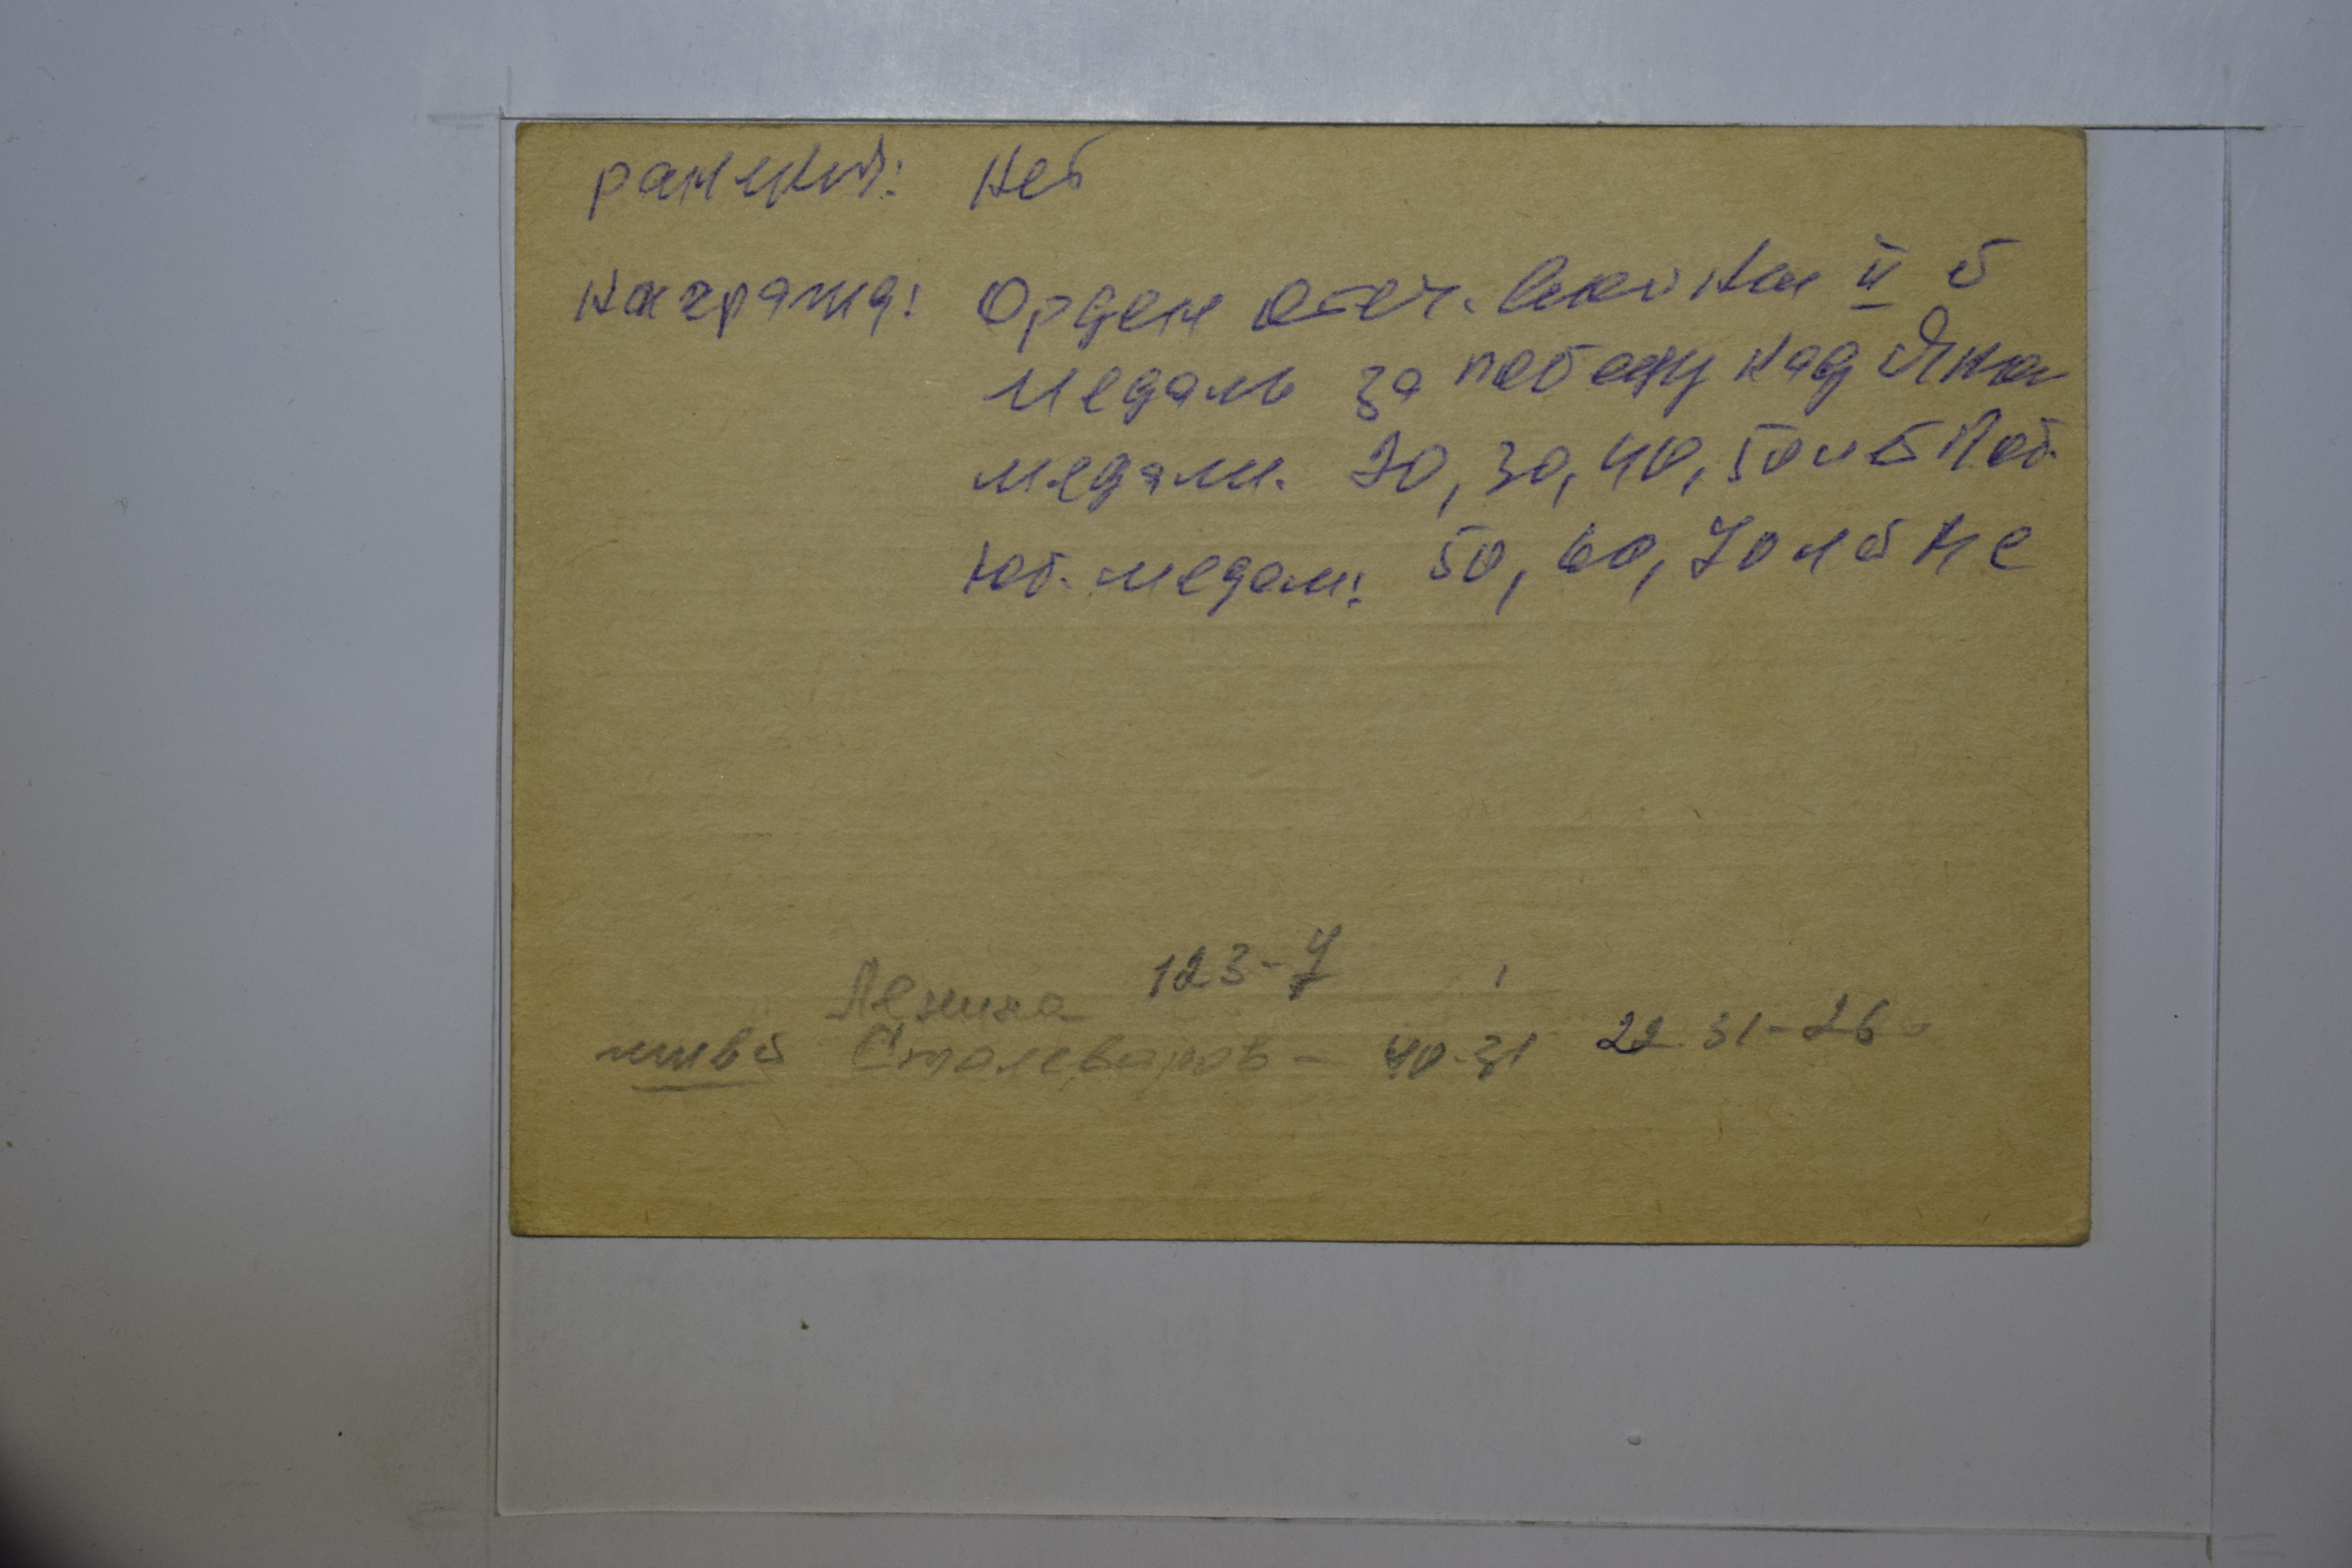 ранений: нет
награжд: Орден отеч. войны II ст
медаль за победу над Япон
медали. 20, 30, 40, 50 лет Поб.
юб. медали: 50, 60, 70 лет ВС
Ленина 123-7
живет Сталеваров - 40-31 22 31-26